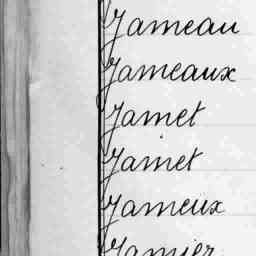 Jameau
Jameaux
Jamet
Jamet
Jameux
Jamier